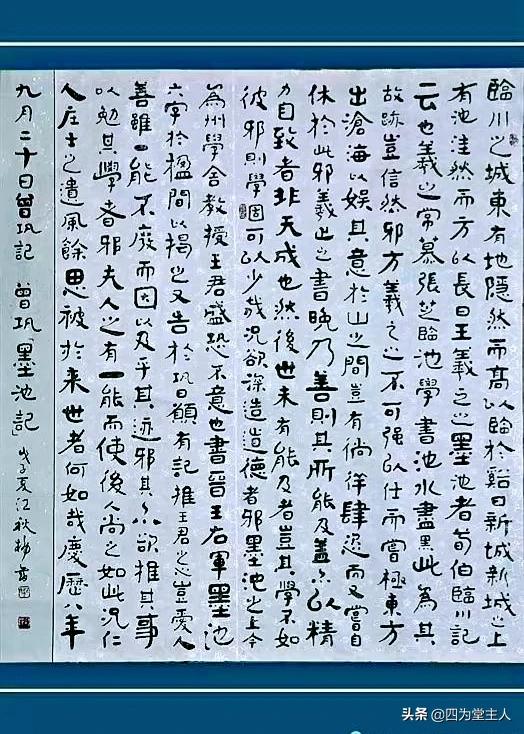 臨川之城東有地隱然而高以臨於谿曰新城新城之上
有池洼然而方以長曰王羲之之墨池者荀伯臨川記
云也羲之常慕張芝臨池學書池水盡黑此為其
故跡豈信然邪方羲之之不可強以仕而嘗極東方
出滄海以娛其意於山之間豈有徜徉肆恣而又嘗自
休於此邪羲之之書晚乃善則其所能及蓋亦以精
力自致者非天成也然後世未有能及者豈其學不如
彼邪則學固可以少哉況欲深造道德者邪墨池之上今
為州學舍教授王君盛恐不意也書晉王右軍墨池
六字於楹間以揭之又告於巩曰願有記推王君之心豈愛人
善雖一能不廢而因以及乎其迹邪其亦欲推其事
以勉其學者邪夫人之有一能而使後人尚之如此況仁
人庄士之遺風餘思被於来世者何如哉慶歷八年
九月二十日曾巩記 曾巩墨池記 戊子夏江秋
头条 @四为堂主人